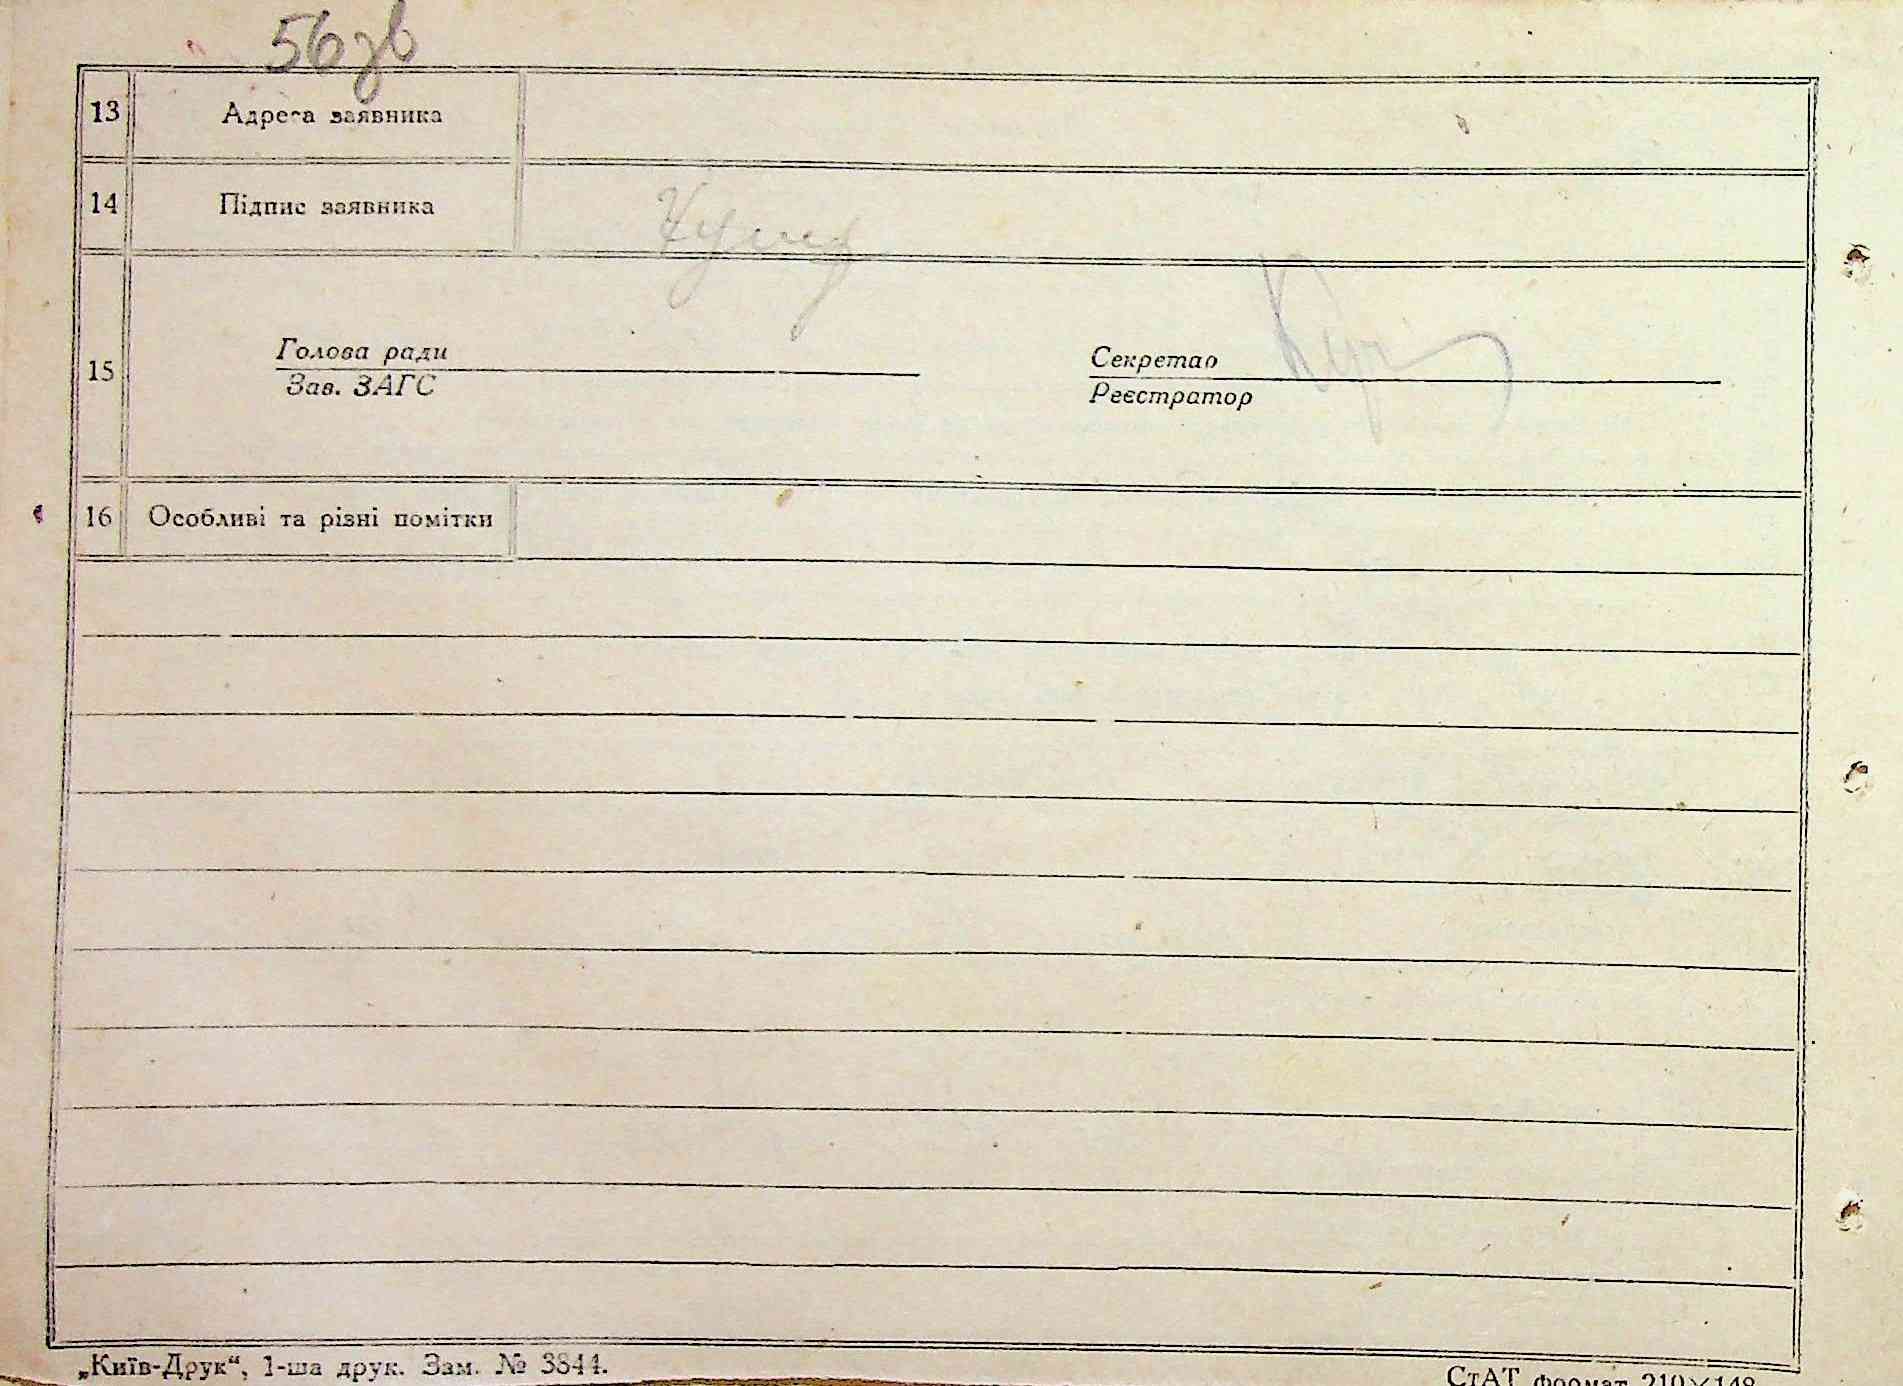 56 зв
13 Адреса заявника
14 Підпис заявника
Голова ради
Секретар
15
Зав. ЗАГС
Реєстратор
16 Особливі та різні помітки
„Київ-Друк“, 1-ша друк. Зам. № 3844.
СтАТ формат 210×148